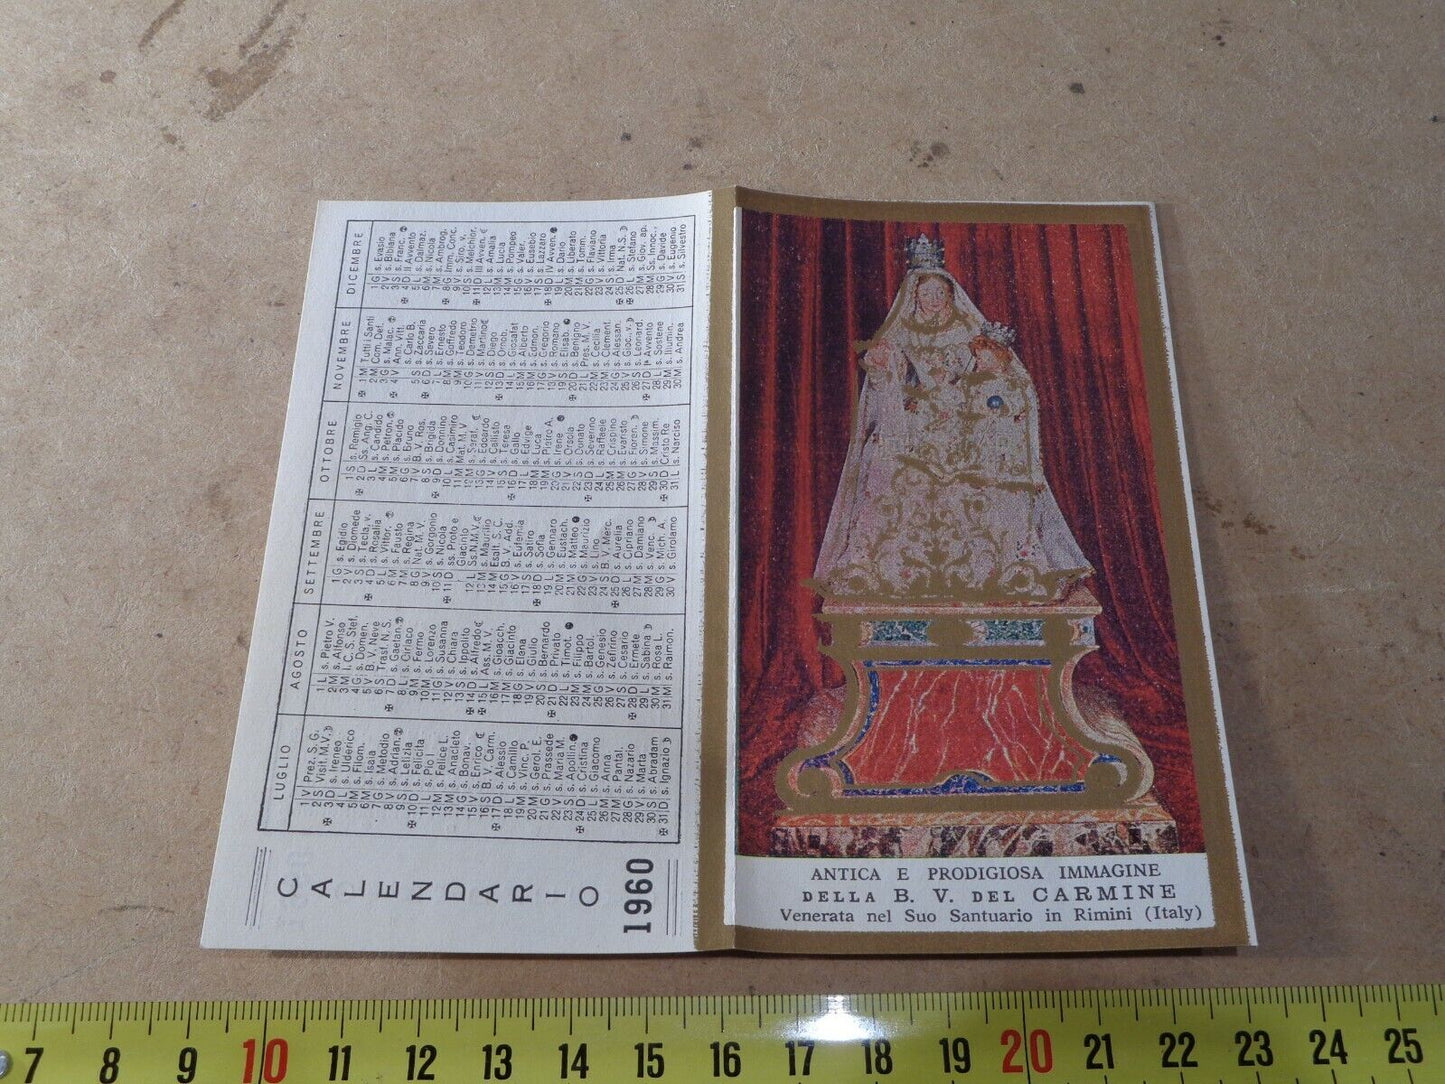 CALENDARIO
1960
LUGLIO
1 V Prez. S.G.
2 S Visit. M.V.
3 D s. Ireneo
4 L s. Ulderico
5 M s. Filom.
6 M s. Isaia
7 G s. Metodio
8 V s. Adrian.
9 S s. Letizia
10 D s. Felicita
11 L s. Pio I
12 M s. Felice
13 M s. Anacleto
14 G s. Bonav.
15 V s. Enrico
16 S B. V. Carm.
17 D s. Alessio
18 L s. Camillo
19 M s. Vinc. P.
20 M s. Gerol. E.
21 G s. Prassede
22 V s. Maria M.
23 S s. Apollin.
24 D s. Cristina
25 L s. Giacomo
26 M s. Anna
27 M s. Pantal.
28 G s. Nazario
29 V s. Marta
30 S s. Abradam
31 D s. Ignazio
AGOSTO
1 L s. Pietro V.
2 M s. Alfonso
3 M C. S. Stef.
4 G s. Domen.
5 V B. V. Neve
6 S Trasf. N. S.
7 D s. Gaetan.
8 L s. Ciriaco
9 M s. Fermo
10 M s. Lorenzo
11 G s. Susanna
12 V s. Chiara
13 S s. Ippolito
14 D s. Alfredo
15 L Ass. M. V.
16 M s. Gioacch.
17 M s. Giacinto
18 G s. Elena
19 V s. Giulio
20 S s. Bernardo
21 D s. Privato
22 L s. Timot.
23 M s. Filippo
24 M s. Bartol.
25 G s. Genesio
26 V s. Zefirino
27 S s. Cesario
28 D s. Ermete
29 L s. Sabina
30 M s. Rosa L.
31 M s. Raimon.
SETTEMBRE
1 G s. Egidio
2 V s. Diomede
3 S s. Tecla, v.
4 D s. Rosalia
5 L s. Vittor.
6 M s. Fausto
7 M s. Regina
8 G Nat. M. V.
9 V s. Gorgonio
10 S s. Nicola
11 D ss. Proto e Giacinto
12 L Ss. N. M.V.
13 M s. Maurilio
14 M Esalt. S. C.
15 G B. V. Add.
16 V s. Eufemia
17 S s. Satiro
18 D s. Sofia
19 L s. Gennaro
20 M s. Eustach.
21 M s. Matteo
22 G s. Maurizio
23 V s. Lino
24 S B. V. Merc.
25 D s. Aurelia
26 L s. Cipriano
27 M s. Damiano
28 M s. Venc.
29 G s. Mich. A.
30 V s. Girolamo
OTTOBRE
1 S s. Remigio
2 D Ss. Ang. C.
3 L s. Candido
4 M s. Petron.
5 M s. Placido
6 G s. Bruno
7 V B. V. Ros.
8 S s. Brigida
9 D s. Donnino
10 L s. Casimiro
11 M Mat. M. V.
12 M s. Seraf.
13 G s. Edoardo
14 V s. Callisto
15 S s. Teresa
16 D s. Gallo
17 L s. Edvige
18 M s. Luca
19 M s. Pietro A.
20 G s. Irene
21 V s. Orsola
22 S s. Donato
23 D s. Severino
24 L s. Raffaele
25 M s. Crispino
26 M s. Evaristo
27 G s. Fioren.
28 V s. Simone
29 S s. Massim.
30 D Cristo Re.
31 L s. Narciso
NOVEMBRE
1 M Tutti i Santi
2 M Com. Def.
3 G s. Malac.
4 V Ann. Vitt.
5 S s. Carlo B.
6 D s. Zaccaria
6 D s. Severo
7 L s. Ernesto
8 M s. Goffredo
9 M s. Teodoro
10 G s. Demetrio
11 V s. Martino
12 S s. Diego
13 D s. Omob.
14 L s. Giosafat
15 M s. Alberto
16 M s. Edmon.
17 G s. Gregorio
18 V s. Romano
19 S s. Elisab.
20 D s. Benigno
21 L Pres. M. V.
22 M s. Cecilia
23 M s. Clement.
24 G s. Alessan.
25 V s. Giac., v.
26 S s. Leonard.
27 D Iª Avvento
28 L s. Sostene
29 M s. Illumin.
30 M s. Andrea
DICEMBRE
1 G s. Evasio
2 V s. Bibiana
3 S s. Franc.
4 D II Avvento
5 L s. Dalmaz.
6 M s. Nicola
7 M s. Ambrog.
8 G Imm. Conc.
9 V s. Siro, v.
10 S s. Melchior.
11 D III Avven.
12 L s. Amalia
13 M s. Lucia
14 M s. Pompeo
15 G s. Valer.
16 V s. Eusebio
17 S s. Lazzaro
18 D IV Avven.
19 L s. Dario
20 M s. Liberato
21 M s. Tomm.
22 G s. Flaviano
23 V s. Vittoria
24 S s. Irma
25 D Nat. N. S.
26 L s. Stefano
27 M s. Giov. ap.
28 M Ss. Innoc.
29 G s. Davide
30 V s. Eugenio
31 S s. Silvestro
ANTICA E PRODIGIOSA IMMAGINE
DELLA B. V. DEL CARMINE
Venerata nel Suo Santuario in Rimini (Italy)
7 8 9 10 11 12 13 14 15 16 17 18 19 20 21 22 23 24 25